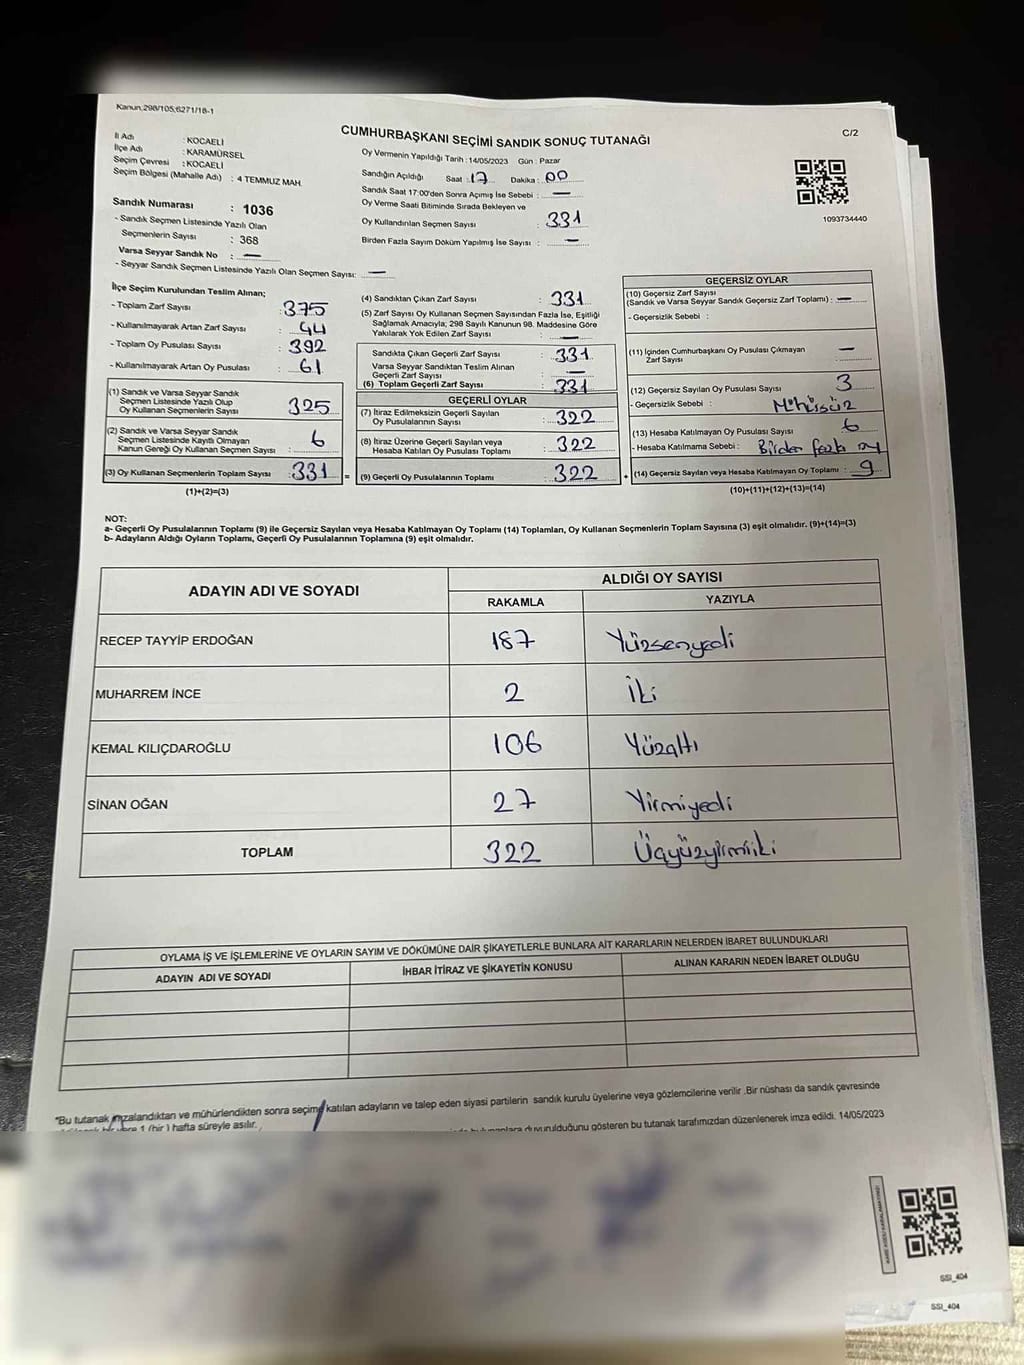 Kanun:298/105;6271/18-1
CUMHURBAŞKANI SEÇİMİ SANDIK SONUÇ TUTANAĞI
C/2
İl Adı : KOCAELİ
İlçe Adı : KARAMÜRSEL
Seçim Çevresi : KOCAELİ
Seçim Bölgesi (Mahalle Adı) : 4 TEMMUZ MAH.
Sandık Numarası : 1036
- Sandık Seçmen Listesinde Yazılı Olan
Seçmenlerin Sayısı : 368
Varsa Seyyar Sandık No : —
- Seyyar Sandık Seçmen Listesinde Yazılı Olan Seçmen Sayısı: —
Oy Vermenin Yapıldığı Tarih : 14/05/2023 Gün : Pazar
Sandığın Açıldığı Saat : 17 Dakika : 00
Sandık Saat 17:00'den Sonra Açımış İse Sebebi : —
Oy Verme Saati Bitiminde Sırada Bekleyen ve
Oy Kullandırılan Seçmen Sayısı : 331
Birden Fazla Sayım Döküm Yapılmış İse Sayısı : —
1093734440
İlçe Seçim Kurulundan Teslim Alınan;
- Toplam Zarf Sayısı : 375
- Kullanılmayarak Artan Zarf Sayısı : 44
- Toplam Oy Pusulası Sayısı : 392
- Kullanılmayarak Artan Oy Pusulası : 61
(1) Sandık ve Varsa Seyyar Sandık
Seçmen Listesinde Yazılı Olup
Oy Kullanan Seçmenlerin Sayısı : 325
(2) Sandık ve Varsa Seyyar Sandık
Seçmen Listesinde Kayıtlı Olmayan
Kanun Gereği Oy Kullanan Seçmen Sayısı : 6
(3) Oy Kullanan Seçmenlerin Toplam Sayısı : 331 =
(1)+(2)=(3)
(4) Sandıktan Çıkan Zarf Sayısı : 331
(5) Zarf Sayısı Oy Kullanan Seçmen Sayısından Fazla İse, Eşitliği
Sağlamak Amacıyla; 298 Sayılı Kanunun 98. Maddesine Göre
Yakılarak Yok Edilen Zarf Sayısı : —
Sandıkta Çıkan Geçerli Zarf Sayısı : 331
Varsa Seyyar Sandıktan Teslim Alınan
Geçerli Zarf Sayısı : —
(6) Toplam Geçerli Zarf Sayısı : 331
GEÇERLİ OYLAR
(7) İtiraz Edilmeksizin Geçerli Sayılan
Oy Pusulalarının Sayısı : 322
(8) İtiraz Üzerine Geçerli Sayılan veya
Hesaba Katılan Oy Pusulası Toplamı : 322
(9) Geçerli Oy Pusulalarının Toplamı : 322 +
GEÇERSİZ OYLAR
(10) Geçersiz Zarf Sayısı
(Sandık ve Varsa Seyyar Sandık Geçersiz Zarf Toplamı) : —
- Geçersizlik Sebebi :
(11) İçinden Cumhurbaşkanı Oy Pusulası Çıkmayan
Zarf Sayısı : —
(12) Geçersiz Sayılan Oy Pusulası Sayısı : 3
- Geçersizlik Sebebi : Mühürsüz
(13) Hesaba Katılmayan Oy Pusulası Sayısı : 6
- Hesaba Katılmama Sebebi : Birden fazla oy
(14) Geçersiz Sayılan veya Hesaba Katılmayan Oy Toplamı : 9
(10)+(11)+(12)+(13)=(14)
NOT:
a- Geçerli Oy Pusulalarının Toplamı (9) ile Geçersiz Sayılan veya Hesaba Katılmayan Oy Toplamı (14) Toplamları, Oy Kullanan Seçmenlerin Toplam Sayısına (3) eşit olmalıdır. (9)+(14)=(3)
b- Adayların Aldığı Oyların Toplamı, Geçerli Oy Pusulalarının Toplamına (9) eşit olmalıdır.
ADAYIN ADI VE SOYADI
ALDIĞI OY SAYISI
RAKAMLA YAZIYLA
RECEP TAYYİP ERDOĞAN 187 Yüzsenyedi
MUHARREM İNCE 2 İki
KEMAL KILIÇDAROĞLU 106 Yüzaltı
SİNAN OĞAN 27 Yirmiyedi
TOPLAM 322 Üçyüzyirmiiki
OYLAMA İŞ VE İŞLEMLERİNE VE OYLARIN SAYIM VE DÖKÜMÜNE DAİR ŞİKAYETLERLE BUNLARA AİT KARARLARIN NELERDEN İBARET BULUNDUKLARI
ADAYIN ADI VE SOYADI İHBAR İTİRAZ VE ŞİKAYETİN KONUSU ALINAN KARARIN NEDEN İBARET OLDUĞU
*Bu tutanak imzalandıktan ve mühürlendikten sonra seçime katılan adayların ve talep eden siyasi partilerin sandık kurulu üyelerine veya gözlemcilerine verilir .Bir nüshası da sandık çevresinde
bir yere 1 (bir) hafta süreyle asılır.
duyurulduğunu gösteren bu tutanak tarafımızdan düzenlenerek imza edildi. 14/05/2023
SSI_404
SSI_404